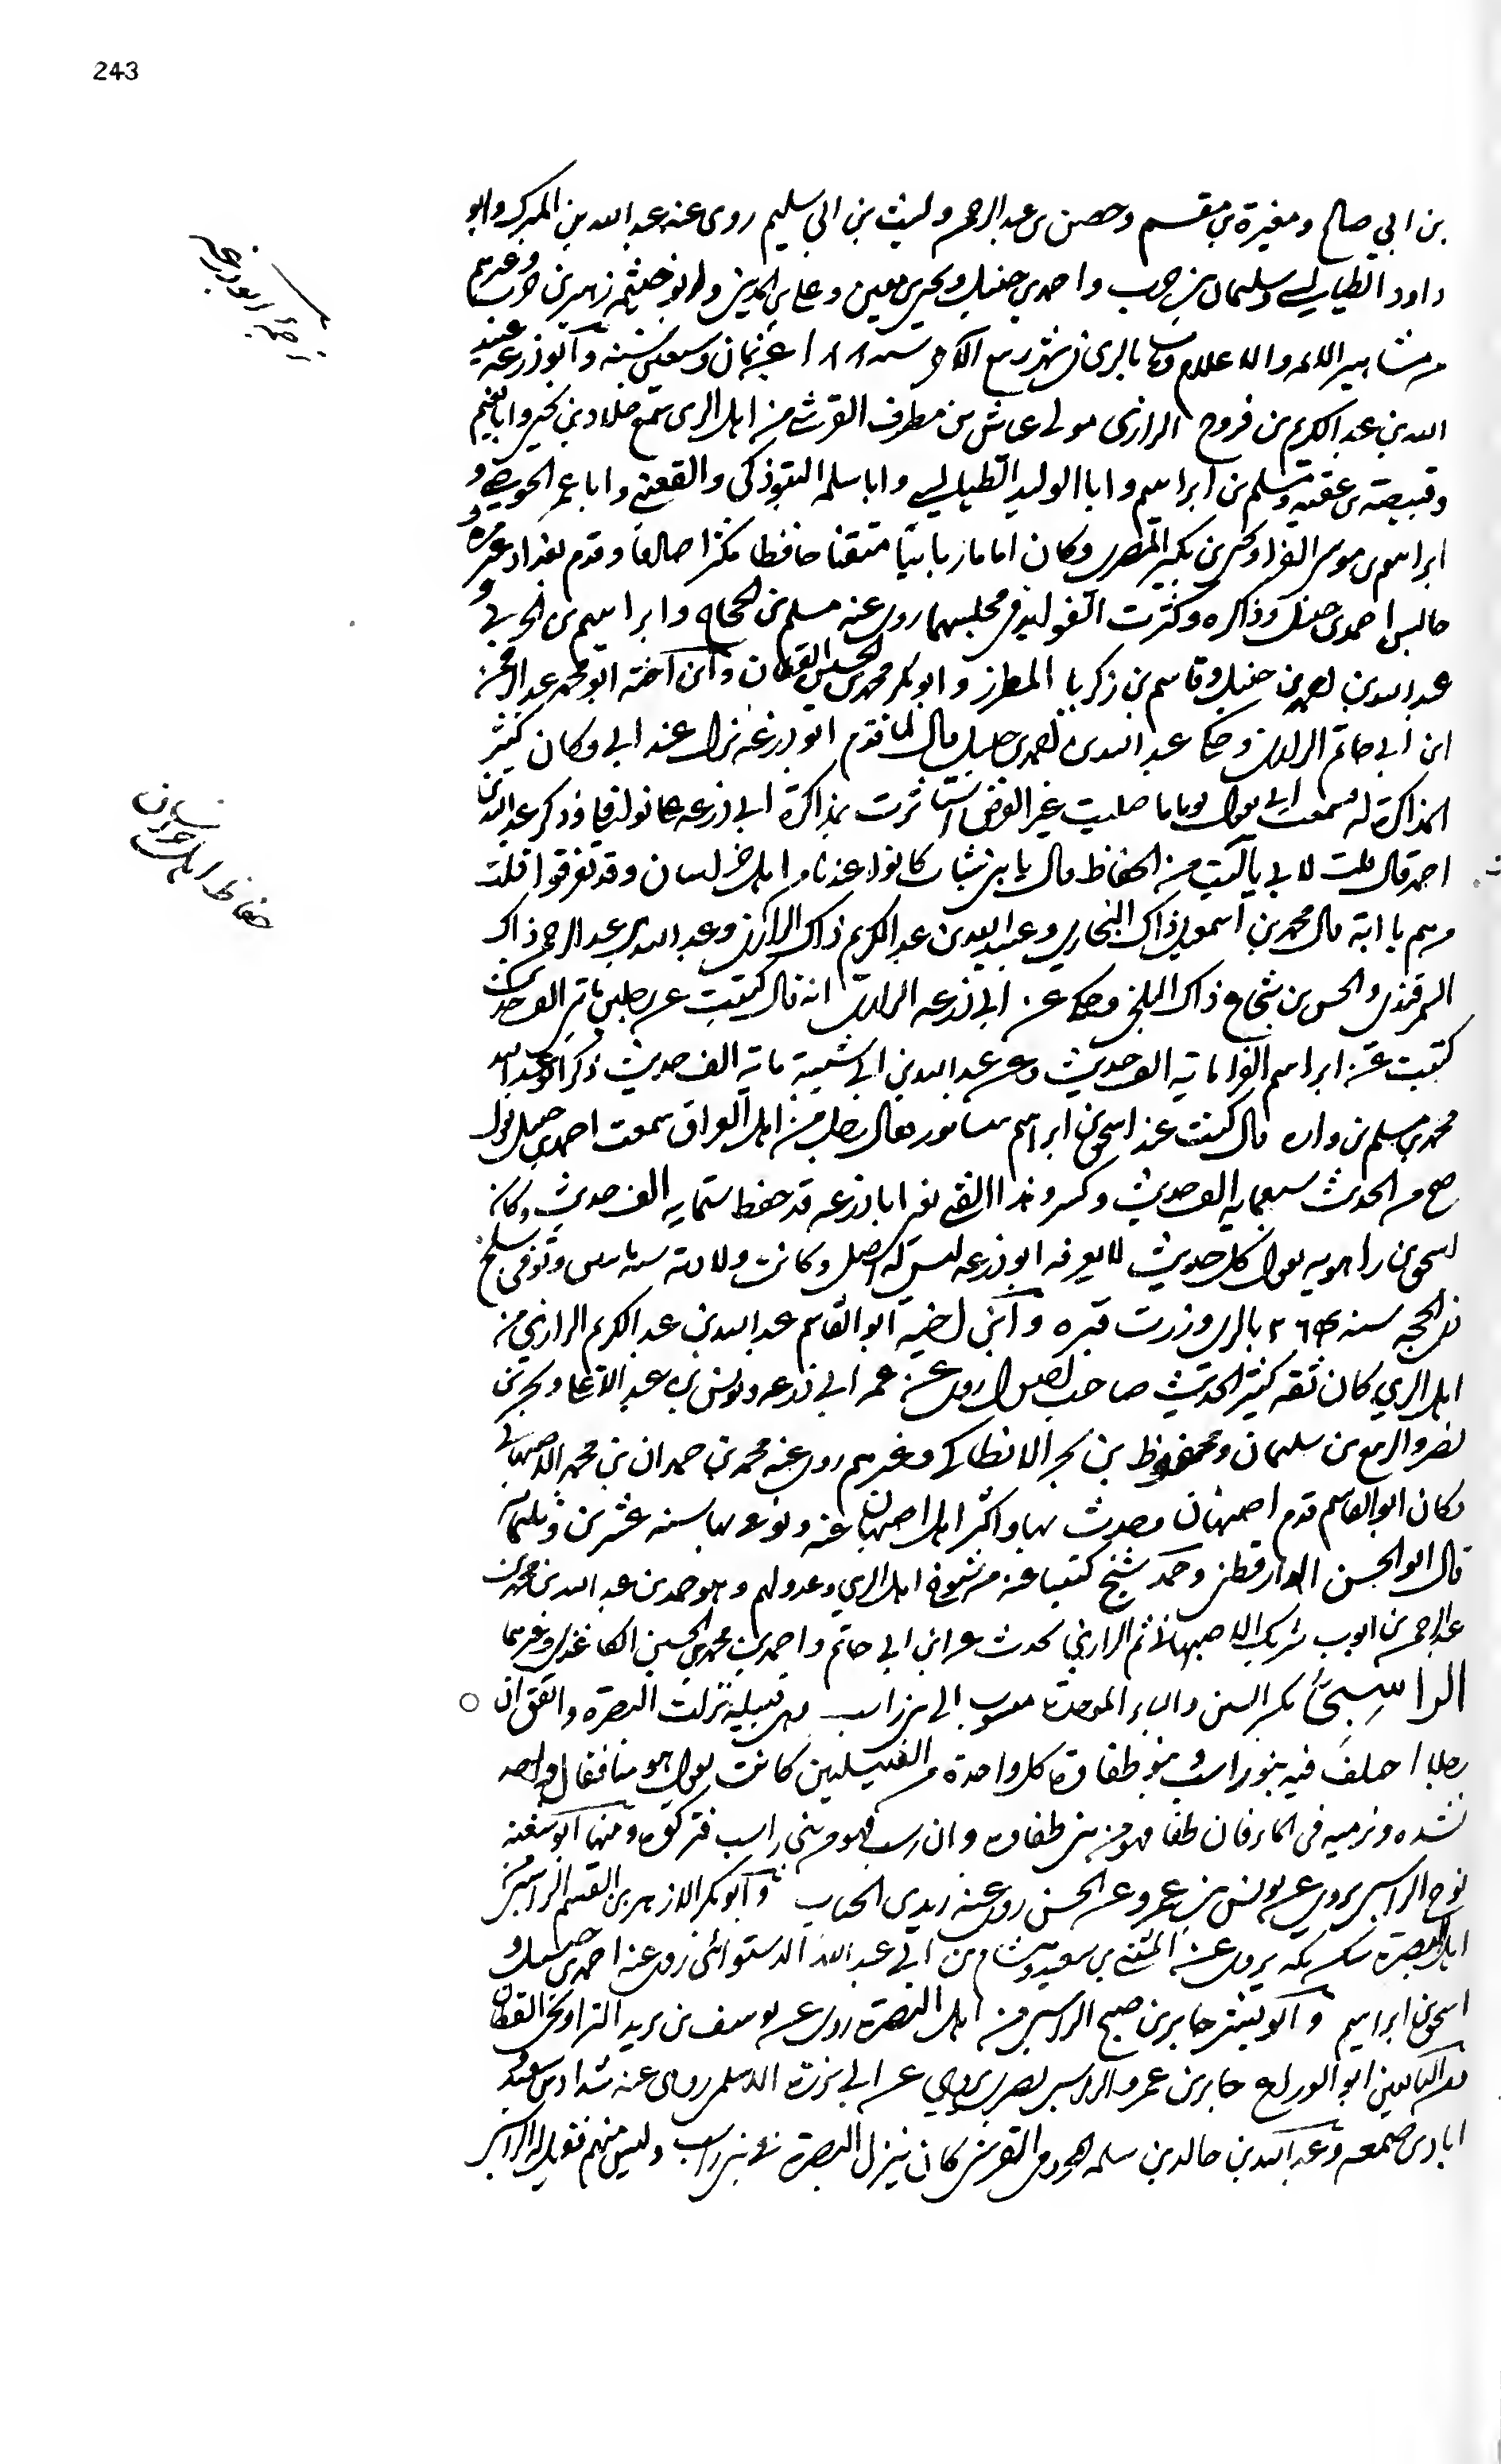 243
بن ابي صالح ومغيرة بن مقسم وحصين بن عبد الرحمن وليث بن ابي سليم روى عنه عبد الله بن المبرك وابو
داود الطيالسي وسليمان بن حرب واحمد بن حنبل ويحيى بن معين وعلي بن المديني وابو خيثمه زهير بن حرب وغيرهم
من مشاهير الائمه والاعلام ومات بالري في شهر ربيع الاخر سنه ١٨٨ عن ثمان وسبعين سنه وابو زرعه عبيد
الله بن عبد الكريم بن فروخ الرازي مولى عياش بن مطرف القرشي من اهل الري سمع خلاد بن يحيى وابا نعيم
وقبيصة بن عقبه ومسلم بن ابراهيم وابا الوليد الطيالسي وابا سلمه التبوذكي والقعنبي وابا عمر الحوضي و
ابراهيم بن موسى الفرا ويحيى بن بكير المصري وكان اماما ربانيا متقنا حافظا مكثرا صادقا وقدم بغداد غير مرة و
جالس احمد بن حنبل وذاكره وكثرت الفوايد في مجلسهما روى عنه مسلم بن الحجاج وابراهيم بن الحربي و
عبد الله بن احمد بن حنبل وقاسم بن زكريا المطرز وابو بكر محمد بن الحسين القطان وابن اخته ابو محمد عبد الرحمن
ابن ابي حاتم الرازي وحكى عبد الله بن احمد بن حنبل قال لما قدم ابو زرعه نزل عند ابي وكان كثير
المذاكرة له فسمعت ابي يقول يوما ما صليت غير الفرض استاثرت بمذاكرة ابي زرعه على نوافلي وذكر عبد الله بن
احمد قال قلت لابي يا ابت من الحفاظ قال يا بني شباب كانوا عندنا من اهل خراسان وقد تفرقوا قلت
من هم يا ابة قال محمد بن اسمعيل ذاك البخاري وعبيد الله بن عبد الكريم ذاك الرازي وعبد الله بن عبد الرحمن ذاك
السمرقندي والحسن بن شجاع ذاك البلخي وحكى عن ابي زرعه الرازي انه قال كتبت عن رجلين مائتي الف حديث
كتبت عن ابراهيم الفرا ماية الف حديث وعن عبد الله بن ابي شيبة ماية الف حديث ذكر ابو عبد الله
محمد بن مسلم بن واره قال كنت عند اسحق بن ابراهيم بنيسابور فقال رجل من اهل العراق سمعت احمد بن حنبل يقول
صح من الحديث سبعمايه الف حديث وكسر وهذا الفتى يعني ابا زرعه قد حفظ ستمايه الف حديث وكان
اسحق بن راهويه يقول كل حديث لا يعرفه ابو زرعه ليس له اصل وكانت ولادته سنه ماتين وتوفي سلخ
ذي الحجه سنه ٢٦٤ بالري وزرت قبره وابن اخيه ابو القاسم عبد الله بن عبد الكريم الرازي من
اهل الري كان ثقه كثير الحديث صاحب اصول روى عن عمه ابي زرعه ويونس بن عبد الاعلى وبحر بن
نصر والربيع بن سليمان ومحفوظ بن بحر الانطاكي وغيرهم روى عنه محمد بن حمدان بن محمد الاصبهاني
وكان ابو القاسم قدم اصبهان وحدث بها واكثر اهل اصبهان عنه وتوفي بها سنه عشرين وثلثمايه
قال ابو الحسن الدارقطني وحمد شيخ كتبنا عنه من شيوخ اهل الري وعدولهم وهو حمد بن عبد الله بن محمد بن
عبد الرحمن بن ايوب شريك الاصبهاني ثم الرازي يحدث عن ابن ابي حاتم واحمد بن محمد بن الحسين الكاغذي وغيرهما
الراسبي بكسر السين والباء الموحدة منسوب الى بني راسب وهي قبيلة نزلت البصره واتفق ان
رجلا اختلف فيه بنو راسب وبنو طفاوة كل واحدة من القبيلتين كانت تقول هو منا فقال واحد
نشده ونرميه في الماء فان طفا فهو من بني طفاوه وان رسب فهو من بني راسب فتركوه ومنها ابو شعبه
نوح الراسبي يروي عن يونس بن عمرو عن الحسن روى عنه زيد بن الحباب وابو بكر الازهر بن القسم الراسبي من
اهل البصرة سكن مكه يروي عن المثنى بن سعيد وهشام بن ابي عبد الله الدستوائي روى عنه احمد بن حنبل و
اسحق بن ابراهيم وابو بشر جابر بن صبح الراسبي من اهل البصره روى عن يوسف بن يزيد البراء ويحيى القطان
ومن التابعين ابو الوازع جابر بن عمرو الراسبي بصري يروي عن ابي برزة الاسلمي روى عنه شداد بن سعيد و
ابان بن صمعه وعبد الله بن خالد بن سلمه المخزومي القرشي كان ينزل البصره في بني راسب وليس منهم فقيل له الراسبي
ترجمة ابو زرعه
حفاظ اهل خراسان